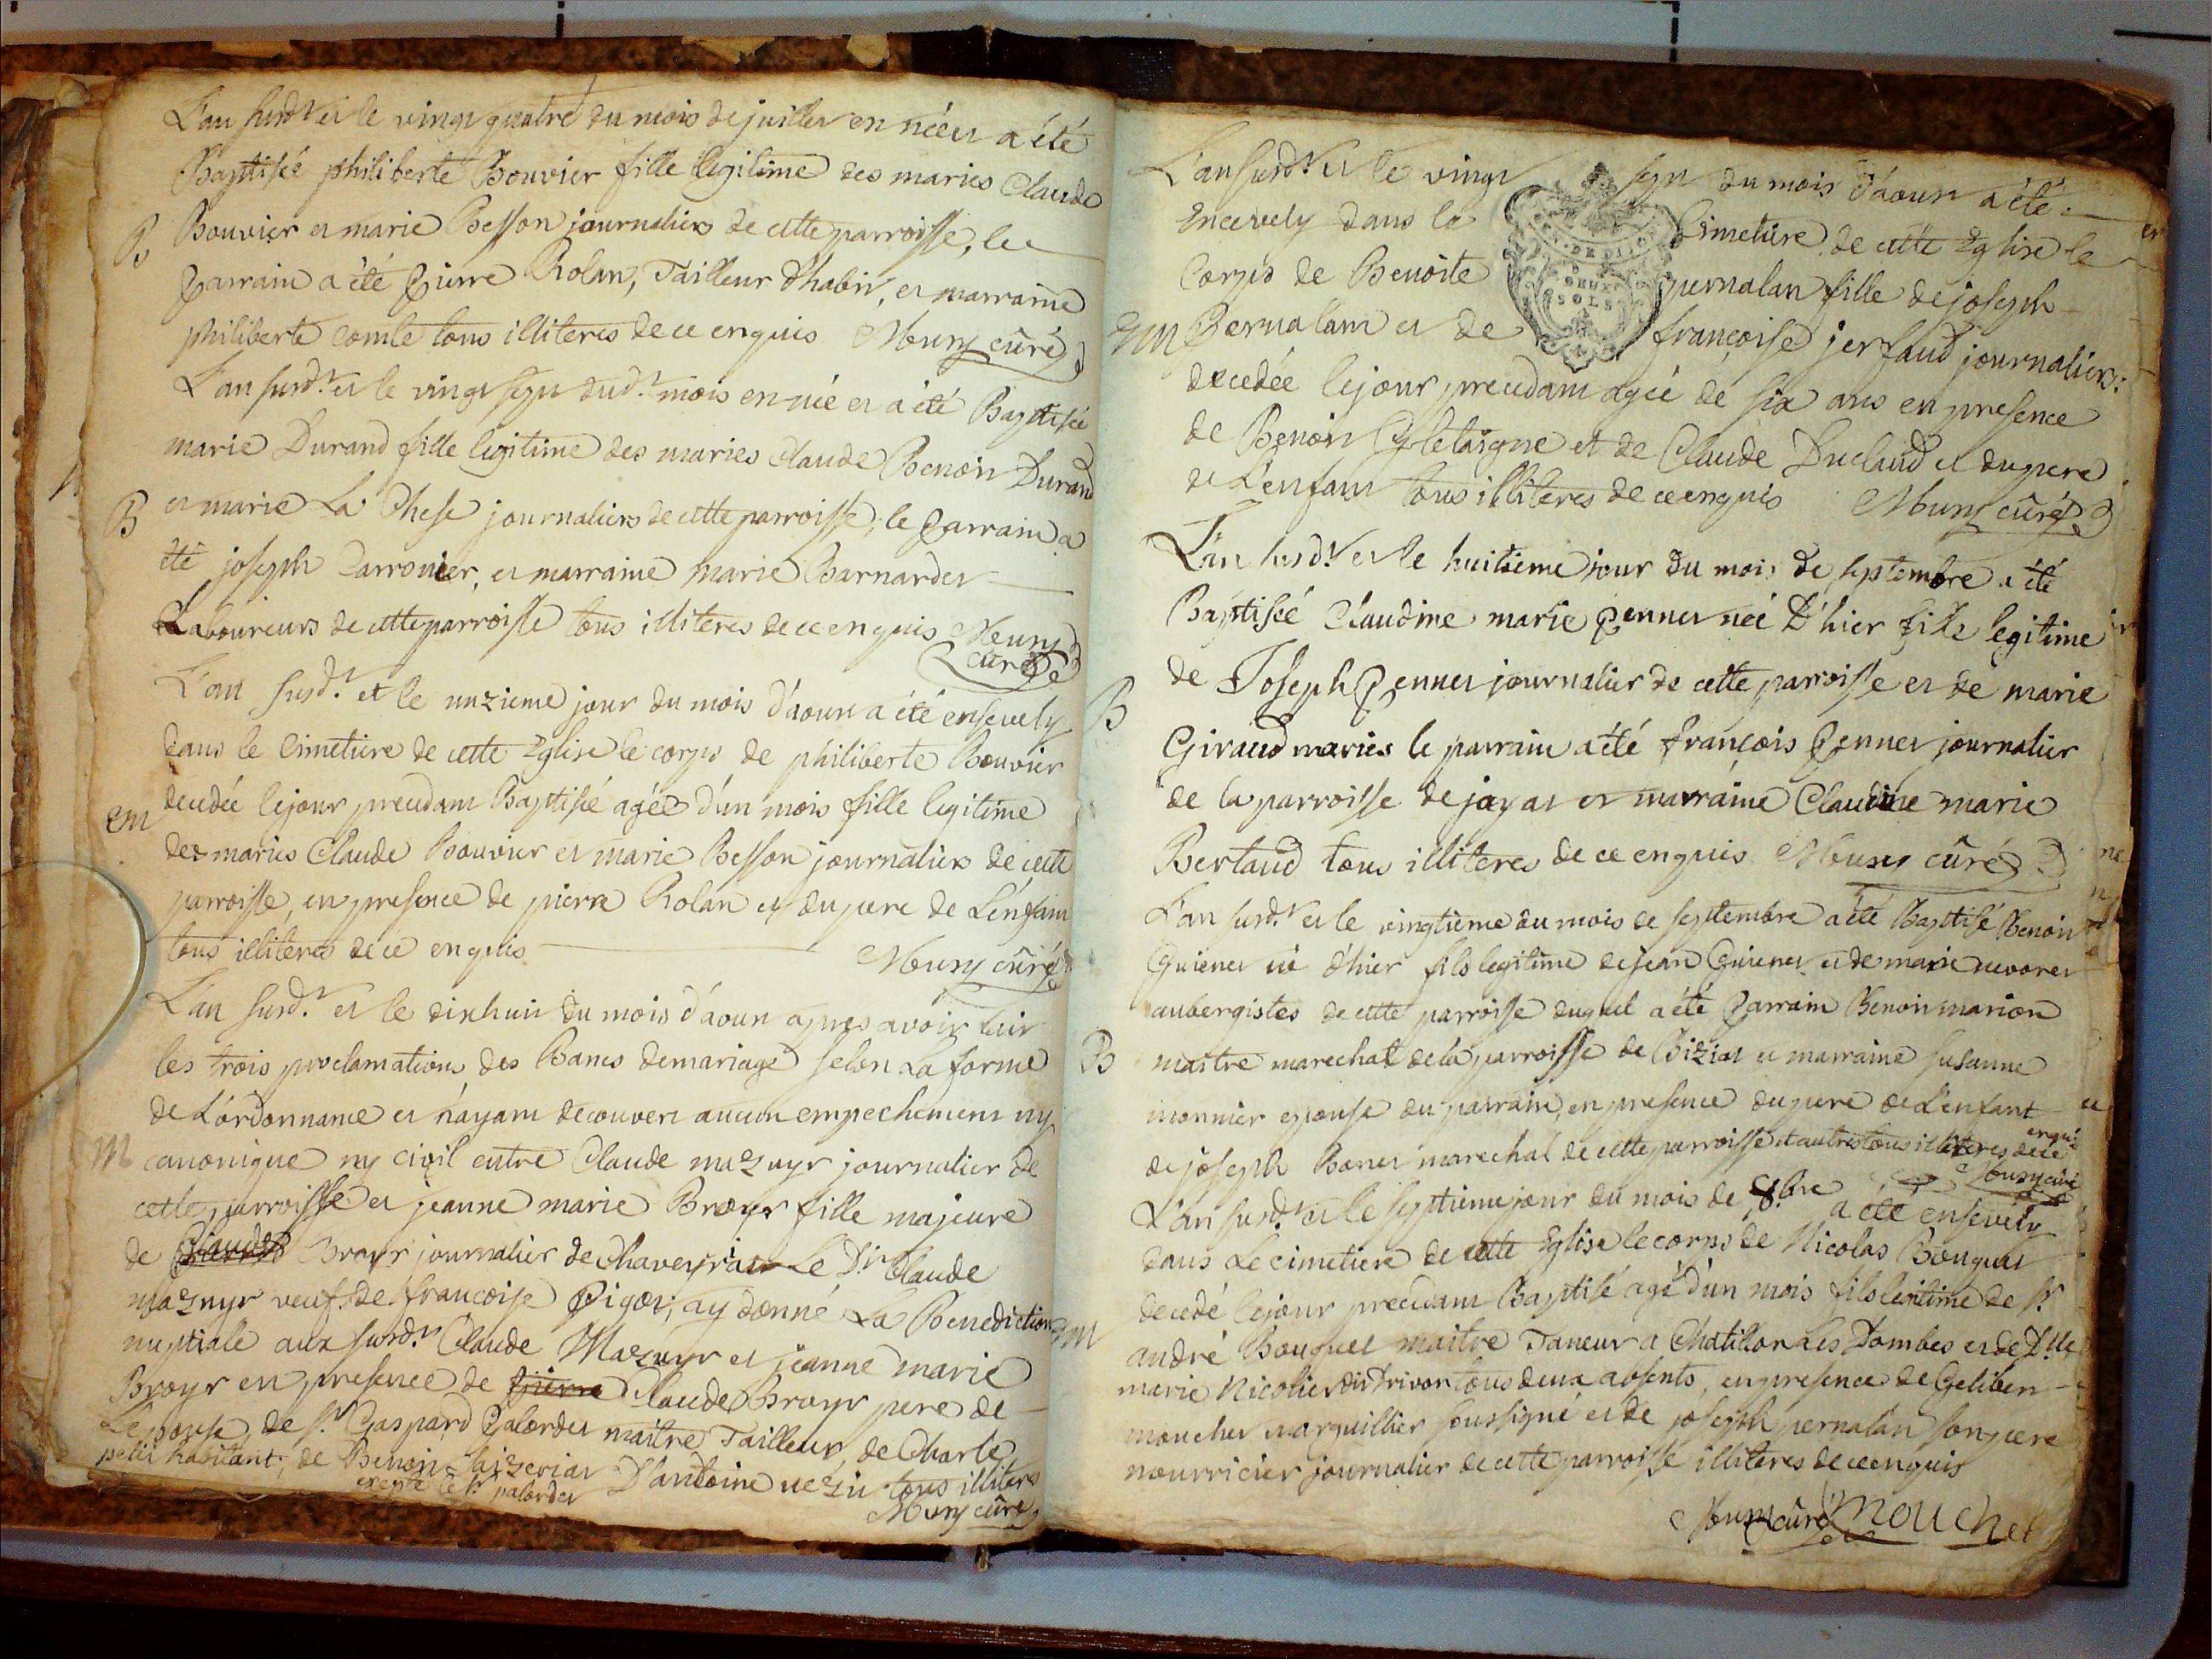 L'an susdt et le vingt quatre du mois de juillet en néeet a été
Baptiséé philiberte Bouvier fille legitime des maries Claude
B Bouvier et marie Besson journaliers de cette parroisse, le
parrain a été pierre Rolan, Tailleur d'habit, et marraine
philiberte comte tous illiteres de ce enquis Muny cûré
L'an susdt. et le vingt sept dudt. mois en née et a été Baptisée
marie Durand fille legitime des maries Claude Benoit Durand
B et marie La Chese journaliers de cette parroisse, le parrain a
été joseph Darronier, et marraine marie Barnardet
Laboureurs de cette parroisse tous illiteres de ce enquis Muny
curé
L'an susdt. et le unzieme jour du mois d'aoust a été ensevely
dans le Cimetiere de cette Eglise le corps de philiberte Bouvier
em decedée le jour precedant Baptisé agée d'un mois fille legitime
des maries Claude Bouvier et marie Besson journaliers de cette
parroisse, en presence de pierre Rolan et du pere de L'enfant
tous illiteres de ce enquis Muny cûré
L'an susdt. et le dixhuit du mois d'aoust apres avoir fait
les trois proclamations des Bancs de mariage selon La forme
de L'ordonnance et n'ayant decouvert aucun empechement ny
M canonique ny civil entre Claude mazuyr journalier de
cette parroisse et jeanne marie Broyr fille majeure
de Claude Broyr journalier de Chaveyriat Le Dt Claude
mazuyr veuf de francoise Pigot; ay donné La Benediction
nuptiale aux susdt. Claude Mazuyr et jeanne marie
Broyr en presence de pierre Claude Broyr pere de
Lepouse, de sr. Gaspard palordet maître Tailleur, de Charle
petit habitant, de Benoit D'antoine tous illiteres
excepté le sr. palordet Muny cûré
L'an susdt. et le vingt sept du mois d'aoust a été
Encevely dans le Cimetiere de cette Eglise le
Corps de Benoite pernalan fille de joseph
em Pernalan et de françoise jerfaud journaliers:
decedée le jour precedant agée de six ans en presence
de Benoit et de Claude Duclaud et du pere
de L'enfant tous illiteres de ce enquis Muny cûré
DEUX
SOLS
L'an susdt. et le huitieme jour du mois de septembre a été
Baptiséé Claudine marie pennet née D'hier fille legitime
de Joseph pennet journalier de cette parroisse et de marie
B Giraud maries le parrain a été françois pennet journalier
de la parroisse de jayat et marraine Claudine marie
Bertaud tous illiteres de ce enquis Muny cûré
L'an susdt. et le vingtieme du mois de septembre a été Baptisé Benoit
Guienet né d'hier fils legitime de jean Guienet et de marie nevoret
aubergistes de cette parroisse duquel a été parrain Benoit marion
B maître marechal de la parroisse de Biziat et marraine susanne
monnier epouse du parrain, en presence du pere de L'enfant
de joseph Bonet marechal de cette parroisse et autres tous illiteres de ce enquis
Muny cûré
L'an susdt. et le septieme jour du mois de 8bre a été ensevely
dans Le cimetiere de cette Eglise le corps de Nicolas Bouquet
em decedé le jour precedant Baptisé agé d'un mois fils legitime de sr.
andré Bouquet maître Taneur a Chatillon Les Dombes et de Dlle
marie Nicolier dit Trivon tous deux absents, en presence de Geliben
mouchet marguillier soussigné et de joseph pernalan son pere
nourricier journalier de cette parroisse illiteres de ce enquis
Muny cûré Mouchet